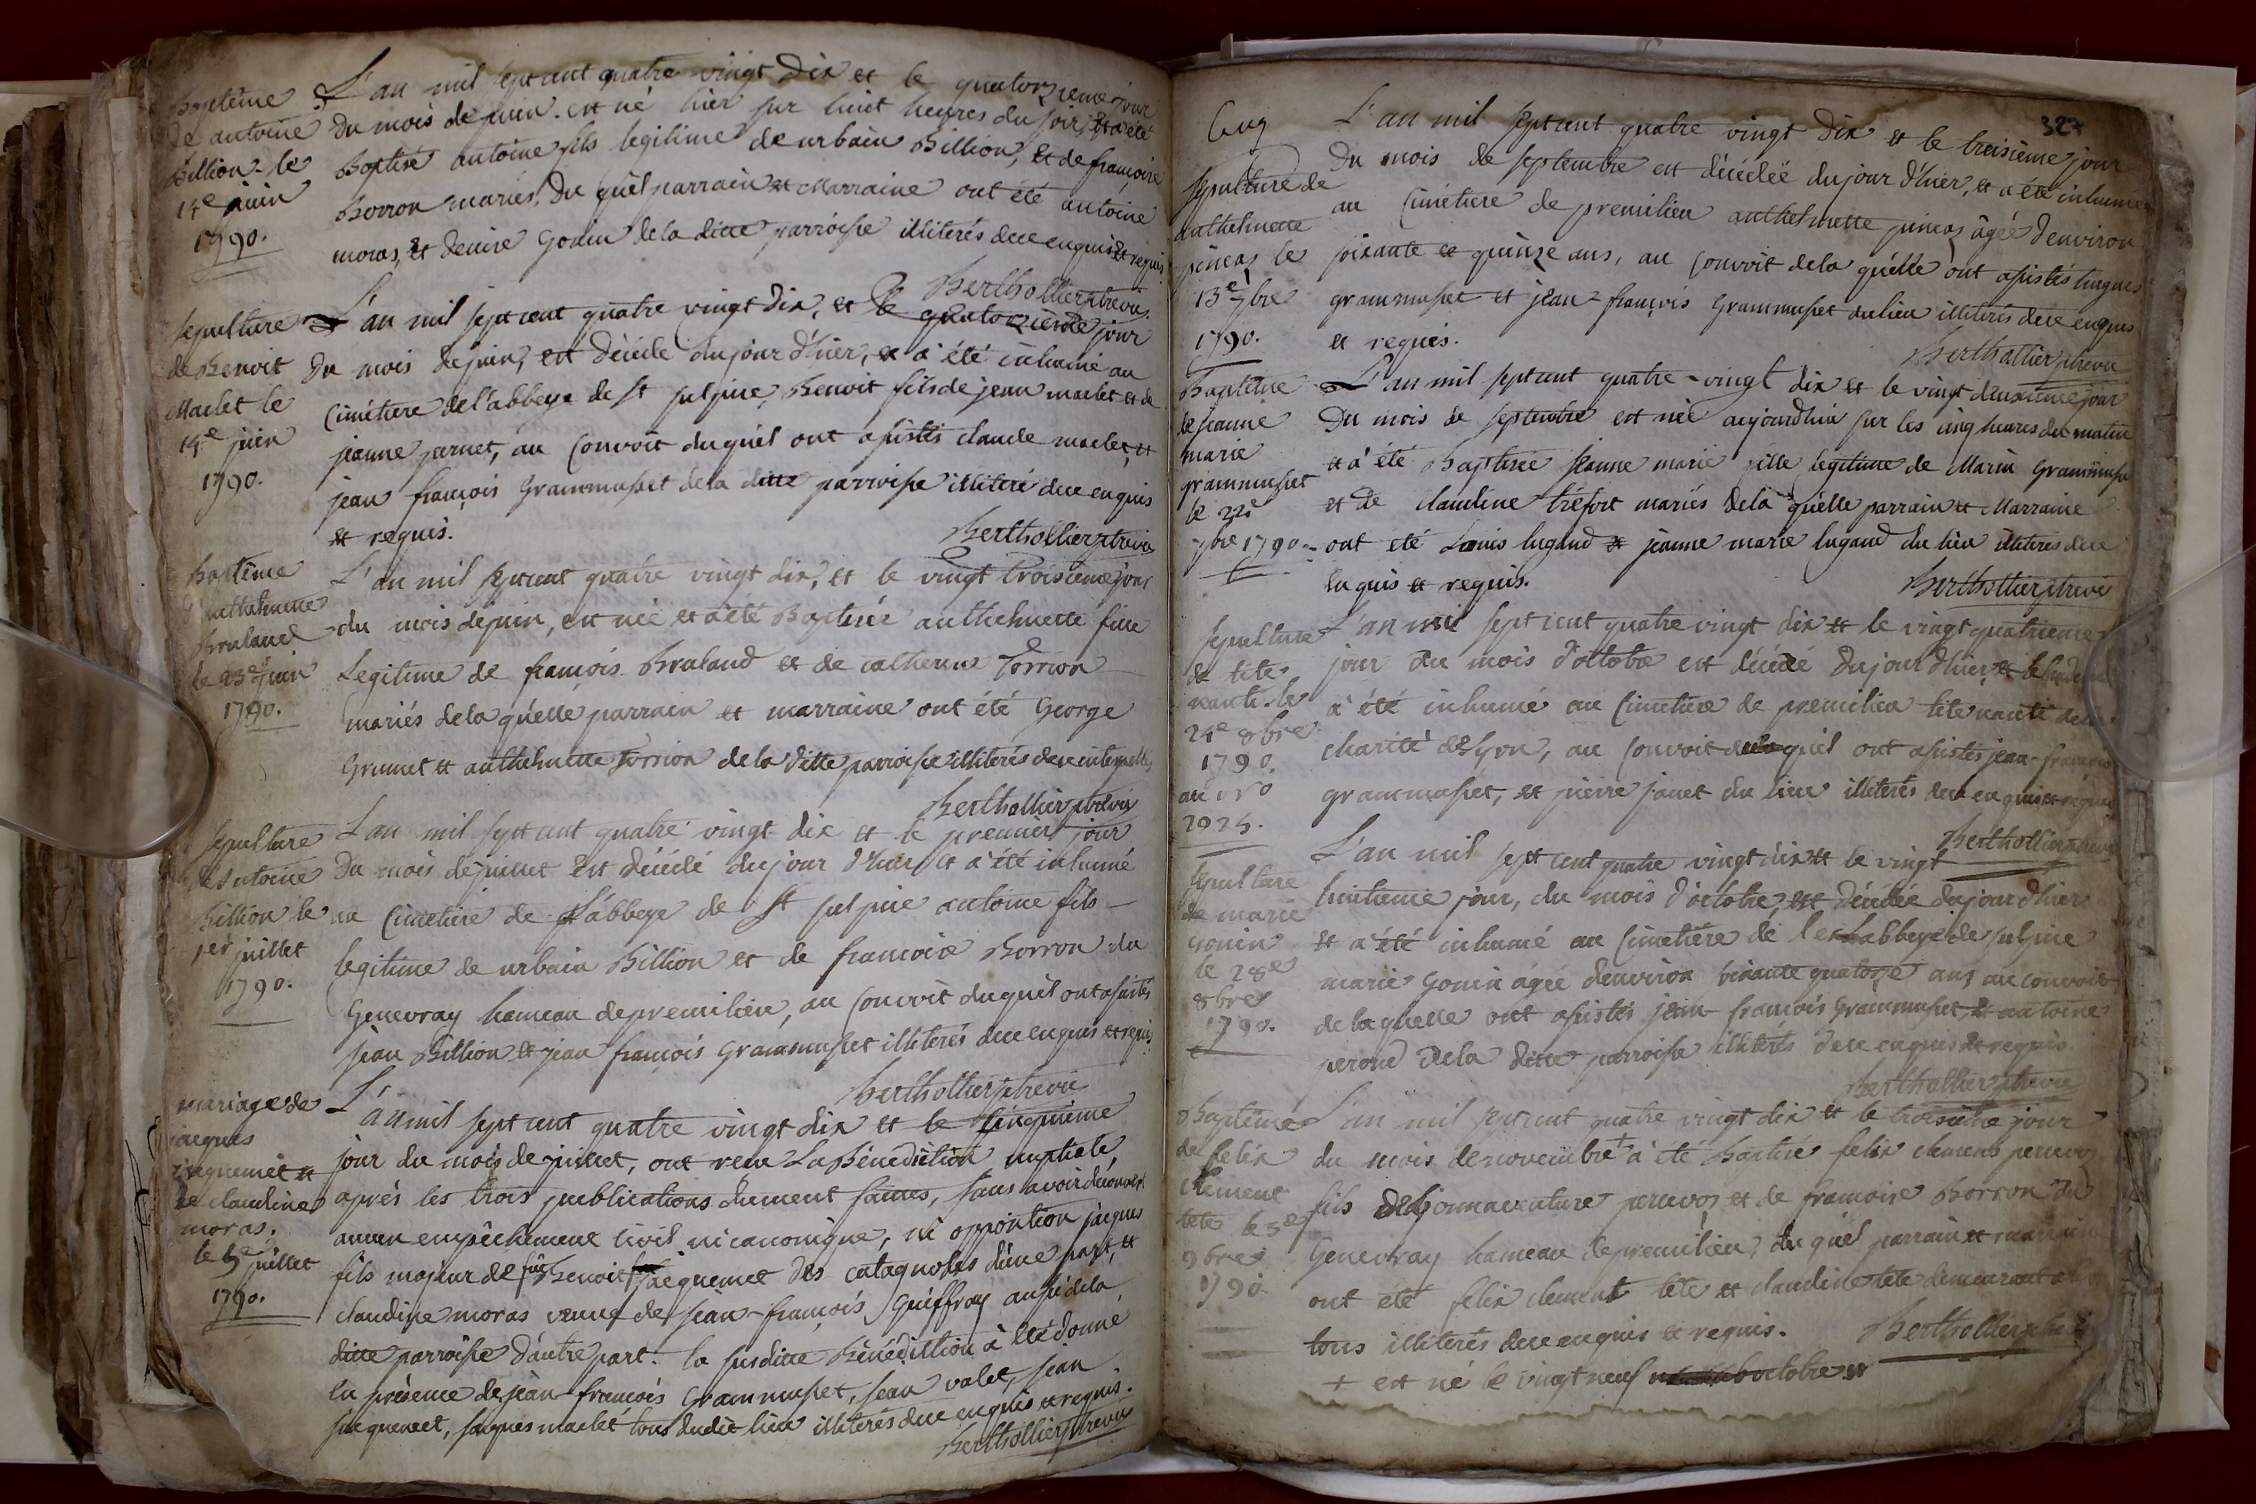 Baptême
de antoine
Billion le
14e juin
1790.
L'an mil sept cent quatre vingt dix et le quatorzieme jour
du mois de juin. est né hier sur huit heures du soir, et a été
Baptisé antoine fils legitime de urbain Billion, et de françoise
Borron mariés, du quel parrain et Marraine ont été antoine
moras, et denise Gonin de la ditte parroisse illiterés de ce enquis et requis
Berthollier ptre vic
sepulture
de Benoit
Maclet le
14e juin
1790.
L'an mil sept cent quatre vingt dix, et le quatorzième jour
du mois de juin, est décédé du jour d'hier, et a été inhumé au
Cimétiere de l'abbaye de St sulpice, Benoit fils de jean maclet et de
jeanne jarnet, au Convoit duquél ont assistés claude maclet, et
jean françois Grammusset de la ditte parroisse illiteré de ce enquis
et requis.
Berthollier ptre vic
Baptême
d'anthelmette
Braland
le 23e juin
1790.
L'an mil sept cent quatre vingt dix, et le vingt troisieme jour
du mois de juin, est née et a été Baptisée anthelmette fille
Legitime de françois Braland et de catherine Torrion
mariés de la quélle parrain et marraine ont été George
Grumet et anthelmette Torrion de la ditte parroisse illiterés de ce interpellés
Berthollier ptre vic
sepulture
de Antoine
Billion le
1er juillet
1790.
L'an mil sept cent quatre vingt dix et le premier jour
du mois de juillet est décédé du jour d'hier et a été inhumé
au Cimétiere de l'abbaye de St sulpice antoine fils
legitime de urbain Billion et de francoise Borron du
Genevray hameau de premilieu, au Convoit duquél ont assistés
jean Billion et jean françois Grammusset illiterés de ce enquis et requis
Berthollier ptre vic
mariage de
jacques
jaquemet et
de claudine
moras.
le 5e juillet
1790.
L'an mil sept cent quatre vingt dix et le Cinquieme
jour du mois de juillet, ont recu La Bénédiction nuptiale
aprés les trois publications dument faittes, sans avoir découvert
aucun empêchement Civil ni canonique, ni opposition jacques
fils majeur de feu Benoit jacquemet des catagnolles d'une part, et
claudine moras veuve de jean-françois Guéffroy aussi de la
ditte parroisse d'autre part. la susditte Bénédiction à été donné
en présence de jean-francois Grammusset, jean valet, jean
jacquemet, jacques maclet tous dudit lieu illiterés de ce enquis et requis.
Berthollier ptre vic
327
Cug
sepulture de
anthelmette
pincas le
13e 7bre
1790.
L'an mil sept cent quatre vingt dix et le treisième jour
du mois de septembre est décédée du jour d'hier, et a été inhumée
au Cimétiere de premilieu anthelmette pincas âgée d'environ
soixante et quinze ans, au Convoit de la quélle ont assistés hugues
grammusset et jean-françois Grammusset du lieu illiterés de ce enquis
et requis.
Berthollier ptre vic
Baptême
de jeanne
marie
grammusset
le 22e
7bre 1790.
L'an mil sept cent quatre-vingt dix et le vingt deuxieme jour
du mois de septembre est née aujourdhui sur les cinq heures du matin
et a été Baptisée Jeanne marie fille legitime de Marin Grammusset
et de claudine tréfort mariés de la quélle parrain et Marraine
ont été Louis lugand et jeanne marie lugand du lieu illiteres de ce
enquis et requis.
Berthollier ptre vic
sepulture
de tite
nanti le
24e 8bre
1790.
L'an mil sept cent quatre vingt dix et le vingt quatrieme
jour du mois d'octobre est décédé du jour d'hier,
a été inhumé au Cimetiere de premilieu tite nanti de la
charité de Lyon, au Convoit du quél ont assistés jean-francois
grammusset, et pierre janet du lieu illiterés de ce enquis et requis
Berthollier ptre vic
sepulture
de marie
gonin
le 28e
8bre
1790.
L'an mil sept cent quatre vingt dix et le vingt
huitieme jour, du mois d'octobre, est décédée du jour d'hier
et a été inhumé au Cimétière de l'abbaye de sulpice
marie Gonin agée d'environ soixante quatorze ans, au convoit
de laquelle ont assistés jean-françois Grammusset, et antoine
perond de la ditte parroisse illiterés de ce enquis et requis
Berthollier ptre vic
Baptême
de felix
clement
le 3e
9bre
1790.
L'an mil sept cent quatre vingt dix et le troisième jour
du mois de novembre + a été Baptisé felix clement
fils de Bonnaventure et de francoise Borron du
Genevray hameau de premilieu, du quél parrain et marraine
ont été felix clement tete et claudine tete demeurant
tous illiterés de ce enquis et requis.
Berthollier ptre
+ est né le vingt neuf octobre et